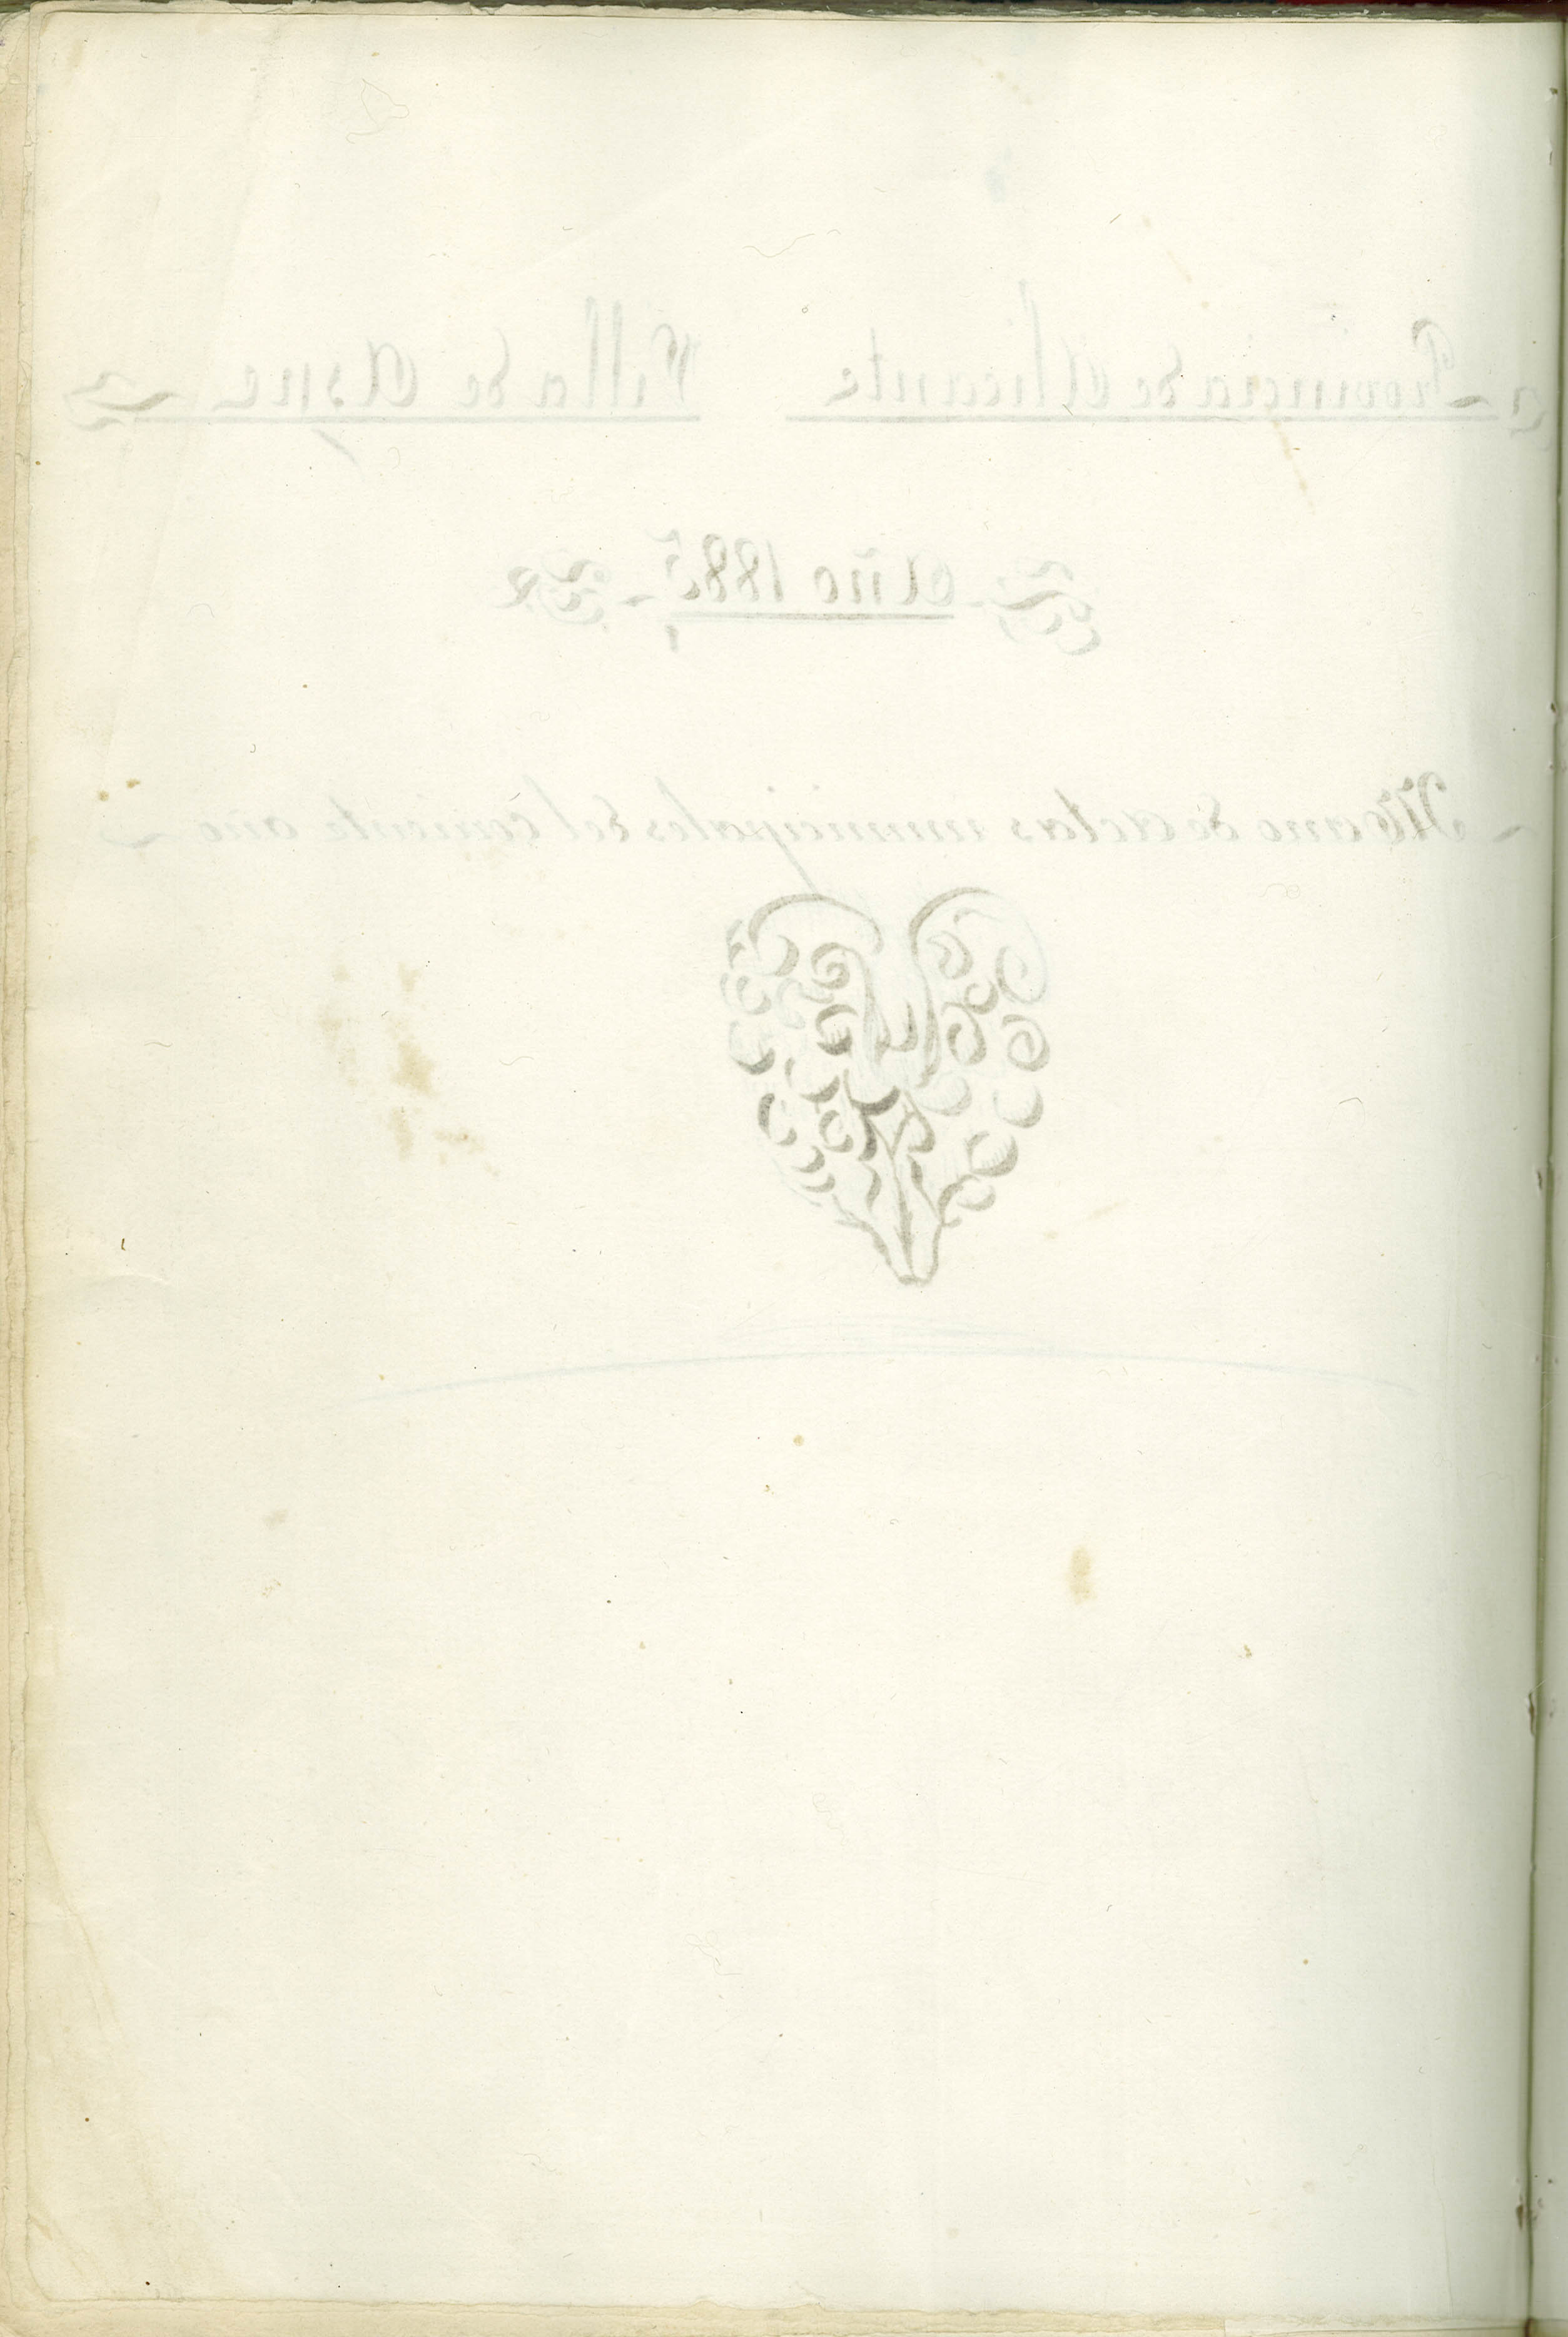 Provincia de Alicante Villa de Aspe
Año 1885
de actas municipales del corriente año